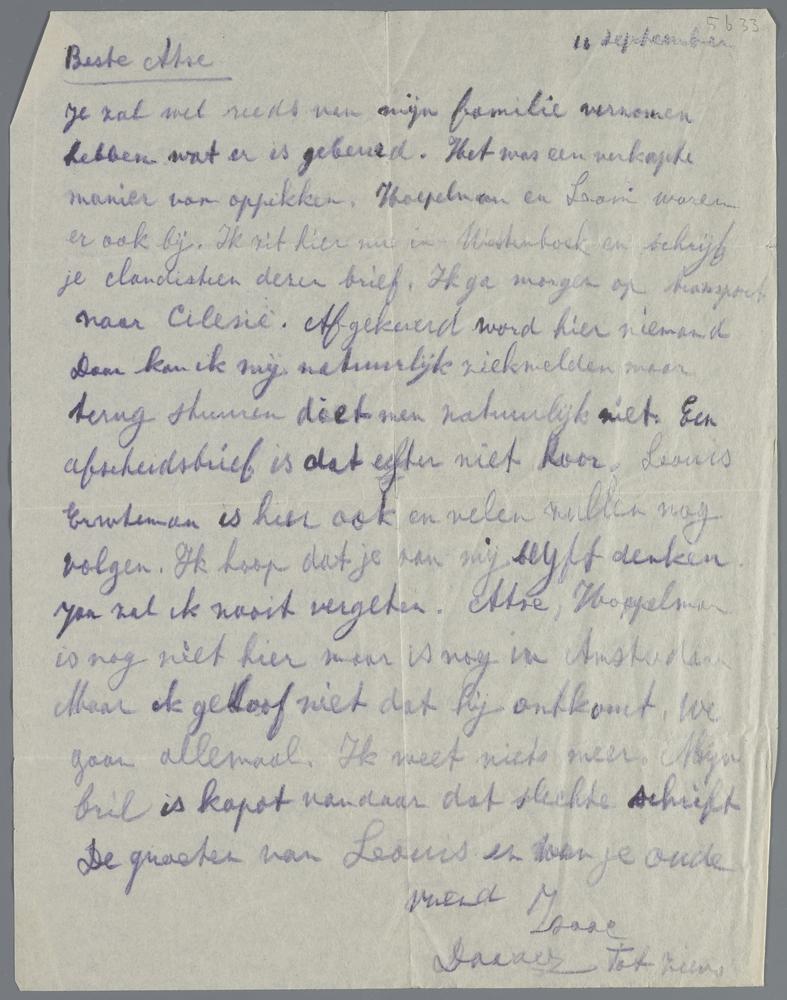 5633
11 September
Beste Atse
Je zal wel reeds van mijn familie vernomen
hebben wat er is gebeurd. Het was een verkapte
manier van oppikken. Hoepelman en waren
er ook bij. Ik zit hier nu in Westerbork en schrijf
je clandistien dezen brief. Ik ga morgen op transport
naar Cilesië. Afgekeurd word hier niemand
Daar kan ik mij natuurlijk ziekmelden maar
terug sturen doet men natuurlijk niet. Een
afscheidsbrief is dat egter niet hoor. Leouis
is hier ook en velen zullen nog
volgen. Ik hoop dat je aan mij blyft denken.
Jou zal ik nooit vergeten. Atse, Hoppelman
is nog niet hier maar is nog in Amsterdam
Maar ik geloof niet dat hij ontkomt. We
gaan allemaal. Ik weet niets meer. Mijn
bril is kapot vandaar dat slechte schrift
De groeten van Leouis en van je oude
vriend Isaac
Tot ziens